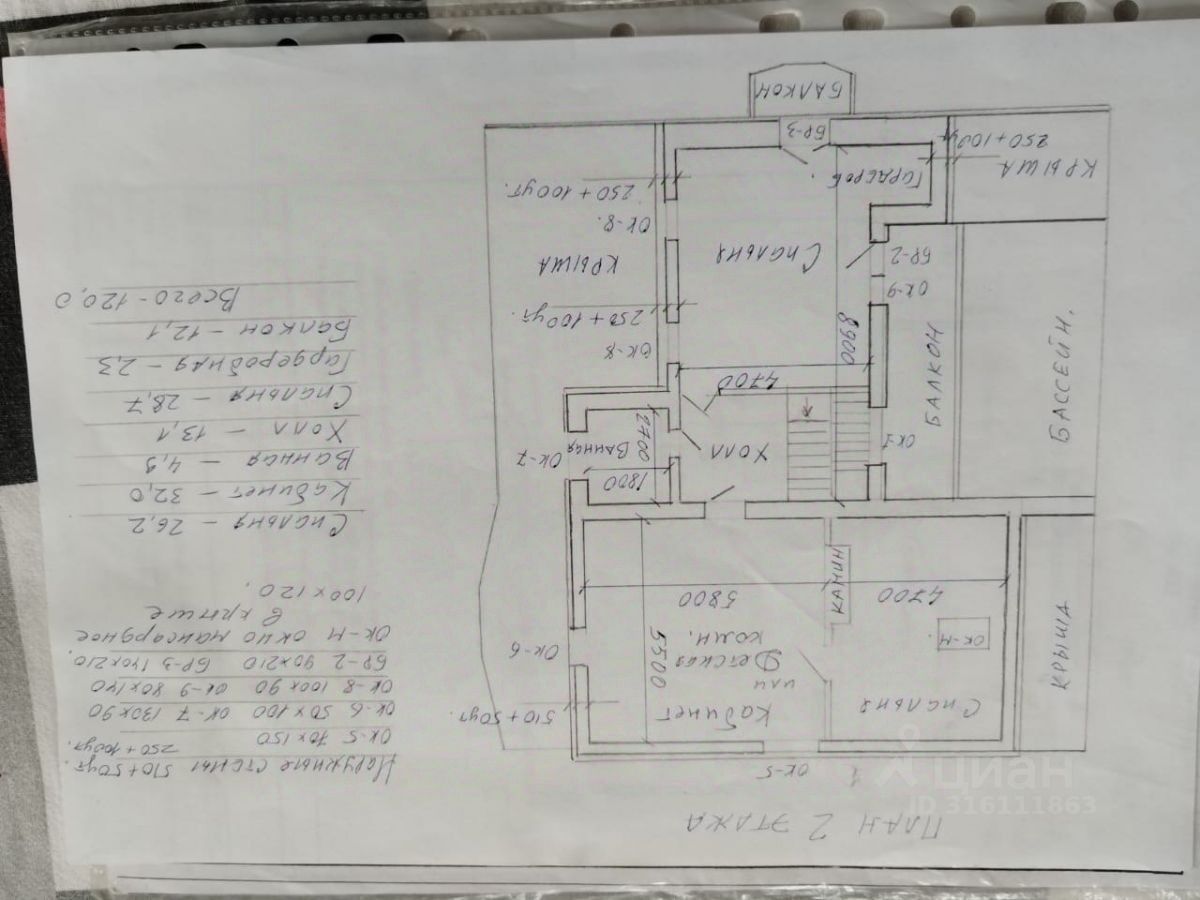 ПЛАН 2 ЭТАЖА
ОК-5
Спальня
Кабинет
или
Детская
комн.
ОК-М.
КАМИН
КРЫША
4700
5800
5500
510+50ут.
ОК-6
Наружные стены 510+50ут.
250+100ут.
ОК-5 70х150
ОК-6 50х100 ОК-7 130х90
ОК-8 100х90 ОК-9 80х140
БР-2 90х210 БР-3 140х210.
ОК-М окно мансардное
в крыше
100х120.
Спальня – 26,2
Кабинет – 32,0
Ванная – 4,9
Холл – 13,1
Спальня – 28,7
Гардеробная – 2,3
Балкон – 12,1
Всего – 120,0
ОК-7
Ванная
1800
2700
Холл
ОК-1
БАЛКОН
БАССЕЙН.
4700
8900
ОК-8
250+100ут.
КРЫША
ОК-8.
250+100ут.
Спальня
ОК-9
БР-2
Гардероб.
КРЫША
250+100ут
БР-3
БАЛКОН
циан
ID 316111863